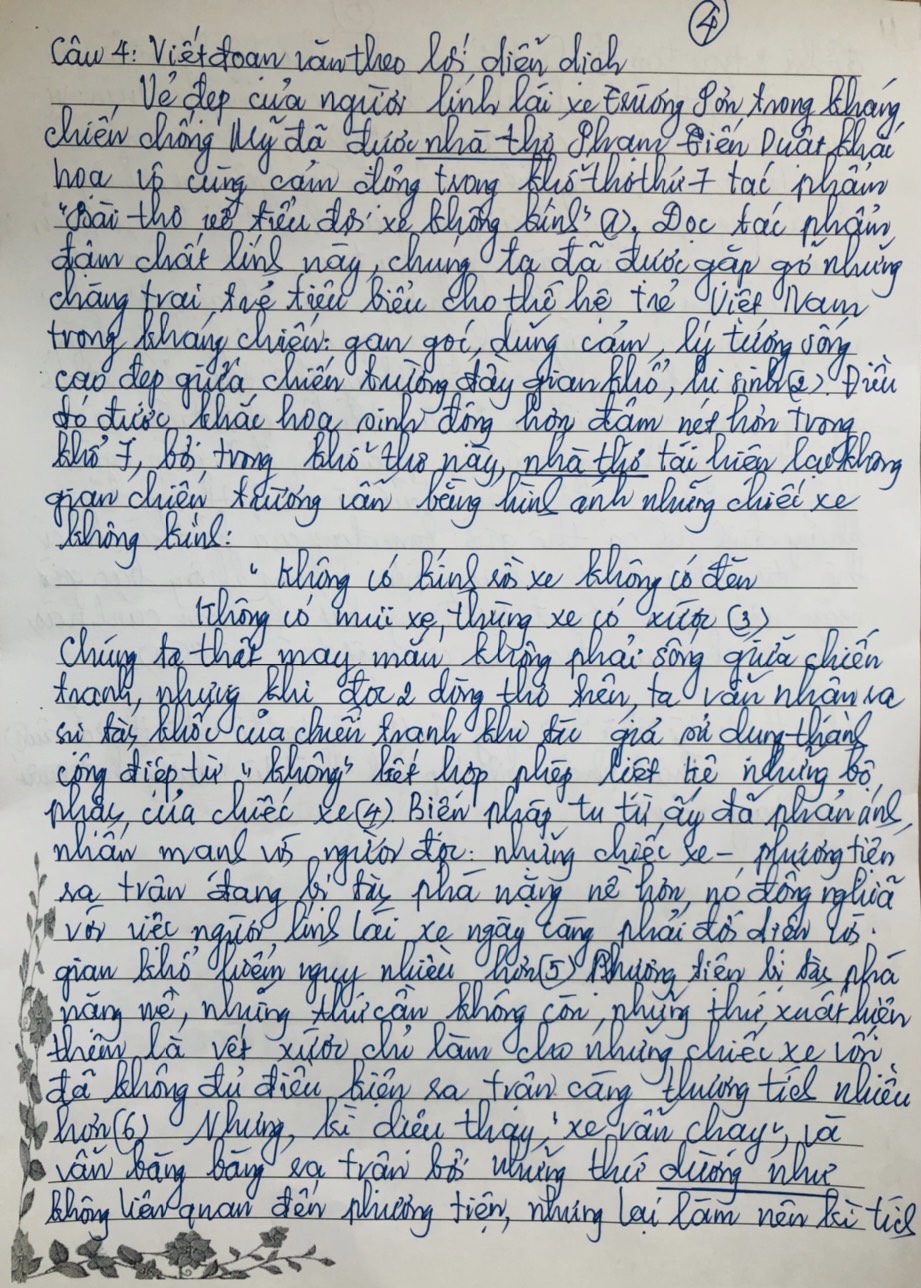 ④
Câu 4: Viết đoạn văn theo lối diễn dịch
Vẻ đẹp của người lính lái xe Trường Sơn trong kháng
chiến chống Mỹ đã được nhà thơ Phạm Tiến Duật khắc
họa vô cùng cảm động trong khổ thơ thứ 7 tác phẩm
"Bài thơ về tiểu đội xe không kính" (1). Đọc tác phẩm
đậm chất lính này, chúng ta đã được gặp gỡ những
chàng trai trẻ tiêu biểu cho thế hệ trẻ Việt Nam
trong kháng chiến: gan góc, dũng cảm, lý tưởng sống
cao đẹp giữa chiến trường đầy gian khổ, hi sinh (2). Điều
đó được khắc họa sinh động hơn đậm nét hơn trong
khổ 7, bởi trong khổ thơ này, nhà thơ tái hiện lại không
gian chiến trường vẫn bằng hình ảnh những chiếc xe
không kính:
"Không có kính rồi xe không có đèn
Không có mui xe, thùng xe có xước (3)
Chúng ta thật may mắn không phải sống giữa chiến
tranh, nhưng khi đọc 2 dòng thơ trên, ta vẫn nhận ra
sự tàn khốc của chiến tranh khi tác giả sử dụng thành
công điệp từ "không" kết hợp phép liệt kê những bộ
phận của chiếc xe (4). Biện pháp tu từ ấy đã phản ánh,
nhấn mạnh với người đọc: những chiếc xe - phương tiện
ra trận đang bị tàn phá nặng nề hơn, nó đồng nghĩa
với việc người lính lái xe ngày càng phải đối diện với
gian khổ hiểm nguy nhiều hơn (5) Phương tiện bị tàn phá
nặng nề, những thứ cần không còn, những thứ xuất hiện
thêm là vết xước chỉ làm cho những chiếc xe vốn
đã không đủ điều kiện ra trận càng thương tích nhiều
hơn (6) Nhưng, kì diệu thay, "xe vẫn chạy", và
vẫn băng băng ra trận bởi những thứ dường như
không liên quan đến phương tiện, nhưng lại làm nên kì tích